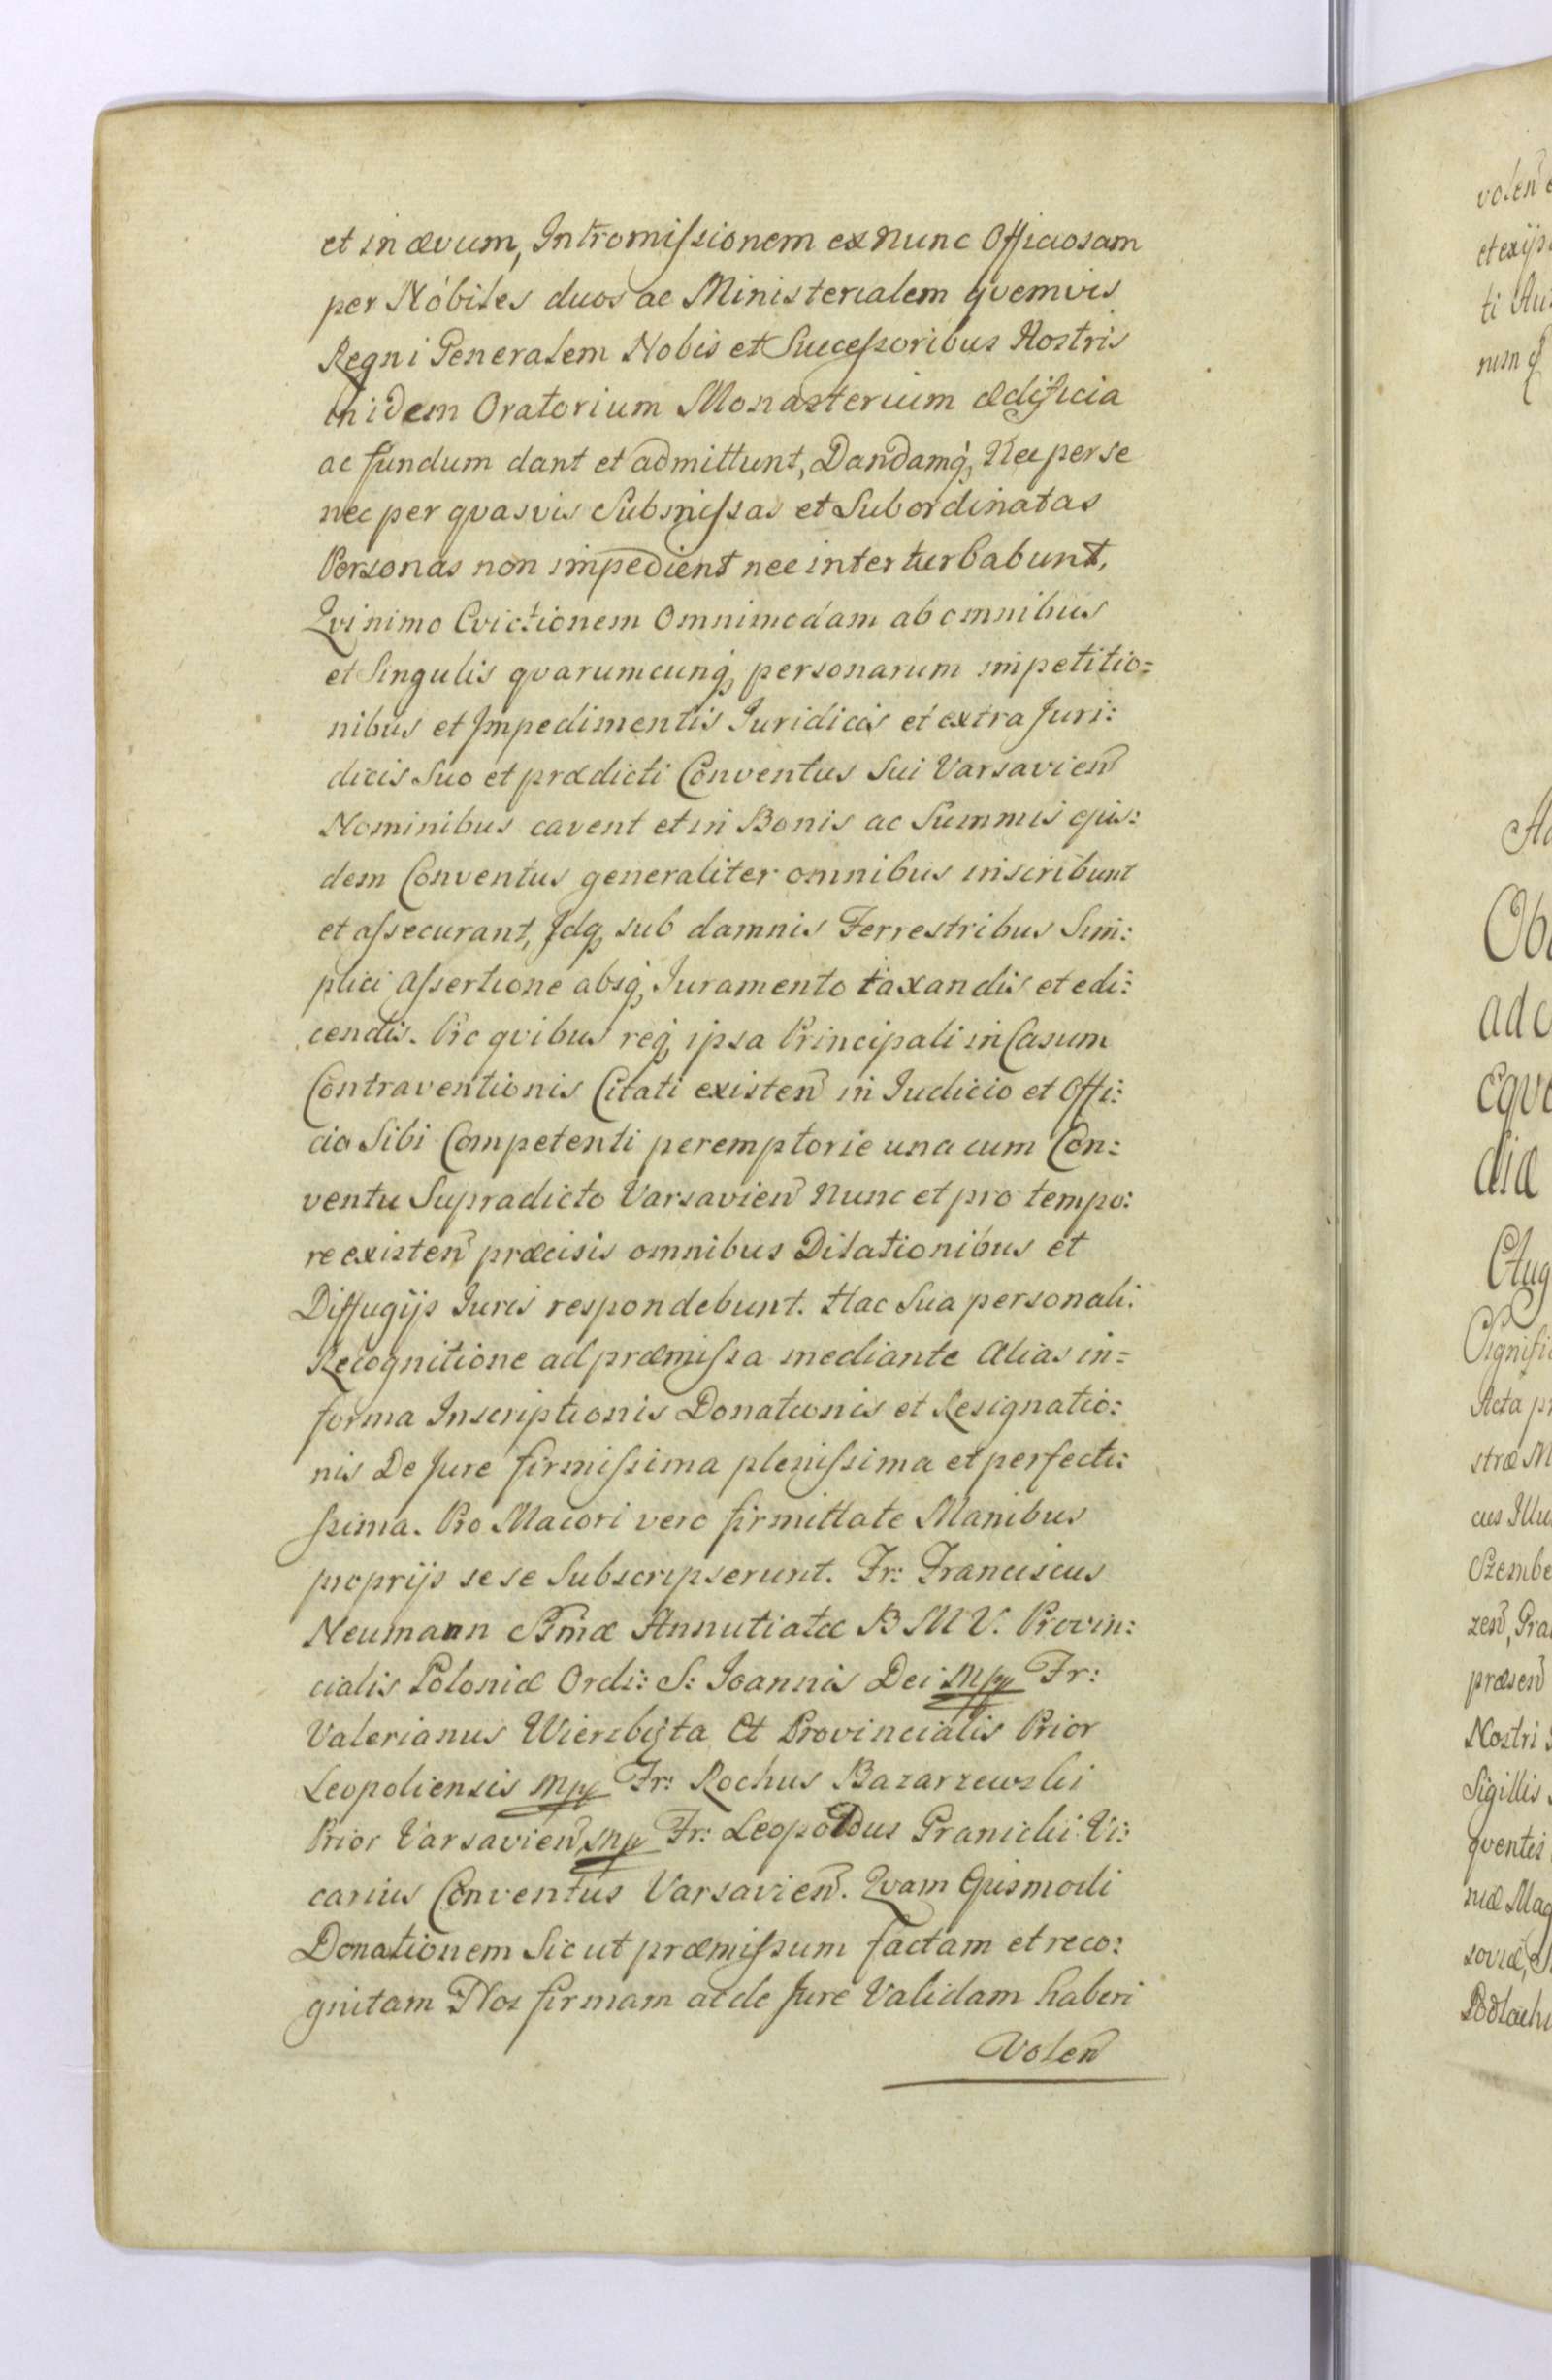 et in ævum, Intromissionem ex nunc Officiosam
per Nobiles duos ac Ministerialem qvemvis
Regni Generalem Nobis et Successoribus Nostris
in idem Oratorium Monasterium ædificia
ac fundum dant et admittunt, Dandamq, Nec per se
nec per qvasvis Submissas et Subordinatas
Personas non impedient nec interturbabunt,
Qvinimo Evictionem Omnimodam ab omnibus
et Singulis qvarumcunq, personarum impetitio=
nibus et Impedimentis Iuridicis et extra Juri:
dicis Suo et prædicti Conventus Sui Varsavien
Nominibus cavent et in Bonis ac Summis ejus:
dem Conventus generaliter omnibus inscribunt
et assecurant, Idq, sub damnis Terrestribus Sim:
plici Assertione absq, Iuramento taxandis et edi:
cendis. Pro qvibus req, ipsa Principali in Casum
Contraventionis Citati existen in Iudicio et Offi:
cio Sibi Competenti peremptorie una cum Con:
ventu Supradicto Varsavien Nunc et pro tempo:
re existen præcisis omnibus Dilationibus et
Diffugijs Iuris respondebunt. Hac Sua personali:
Recognitione ad præmissa mediante Alias in=
forma Inscriptionis Donationis et Resignatio:
nis De Jure firmissima plenissima et perfecti:
ssima. Pro Maiori vero firmittate Manibus
proprijs sese Subscripserunt. Fr: Franciscus
Neumann Smæ Annutiatæ B M V. Provin:
cialis Poloniæ Ordi: S: Ioannis Dei mpp Fr:
Valerianus Wierzbięta Et Provincialis Prior
Leopoliensis mpp Fr: Rochus Bazarzewski
Prior Varsavien mp Fr: Leopoldus Granicki Vi:
carius Conventus Varsavien. Qvam Ejusmodi
Donationem Sicut præmissum factam et reco:
gnitam Nos firmam ac de Jure Validam haberi
Volen
volen
ti
Ob
Eqve
diæ
Acta
stræ
cus
præsen
Nostri
Sigillis
qventis